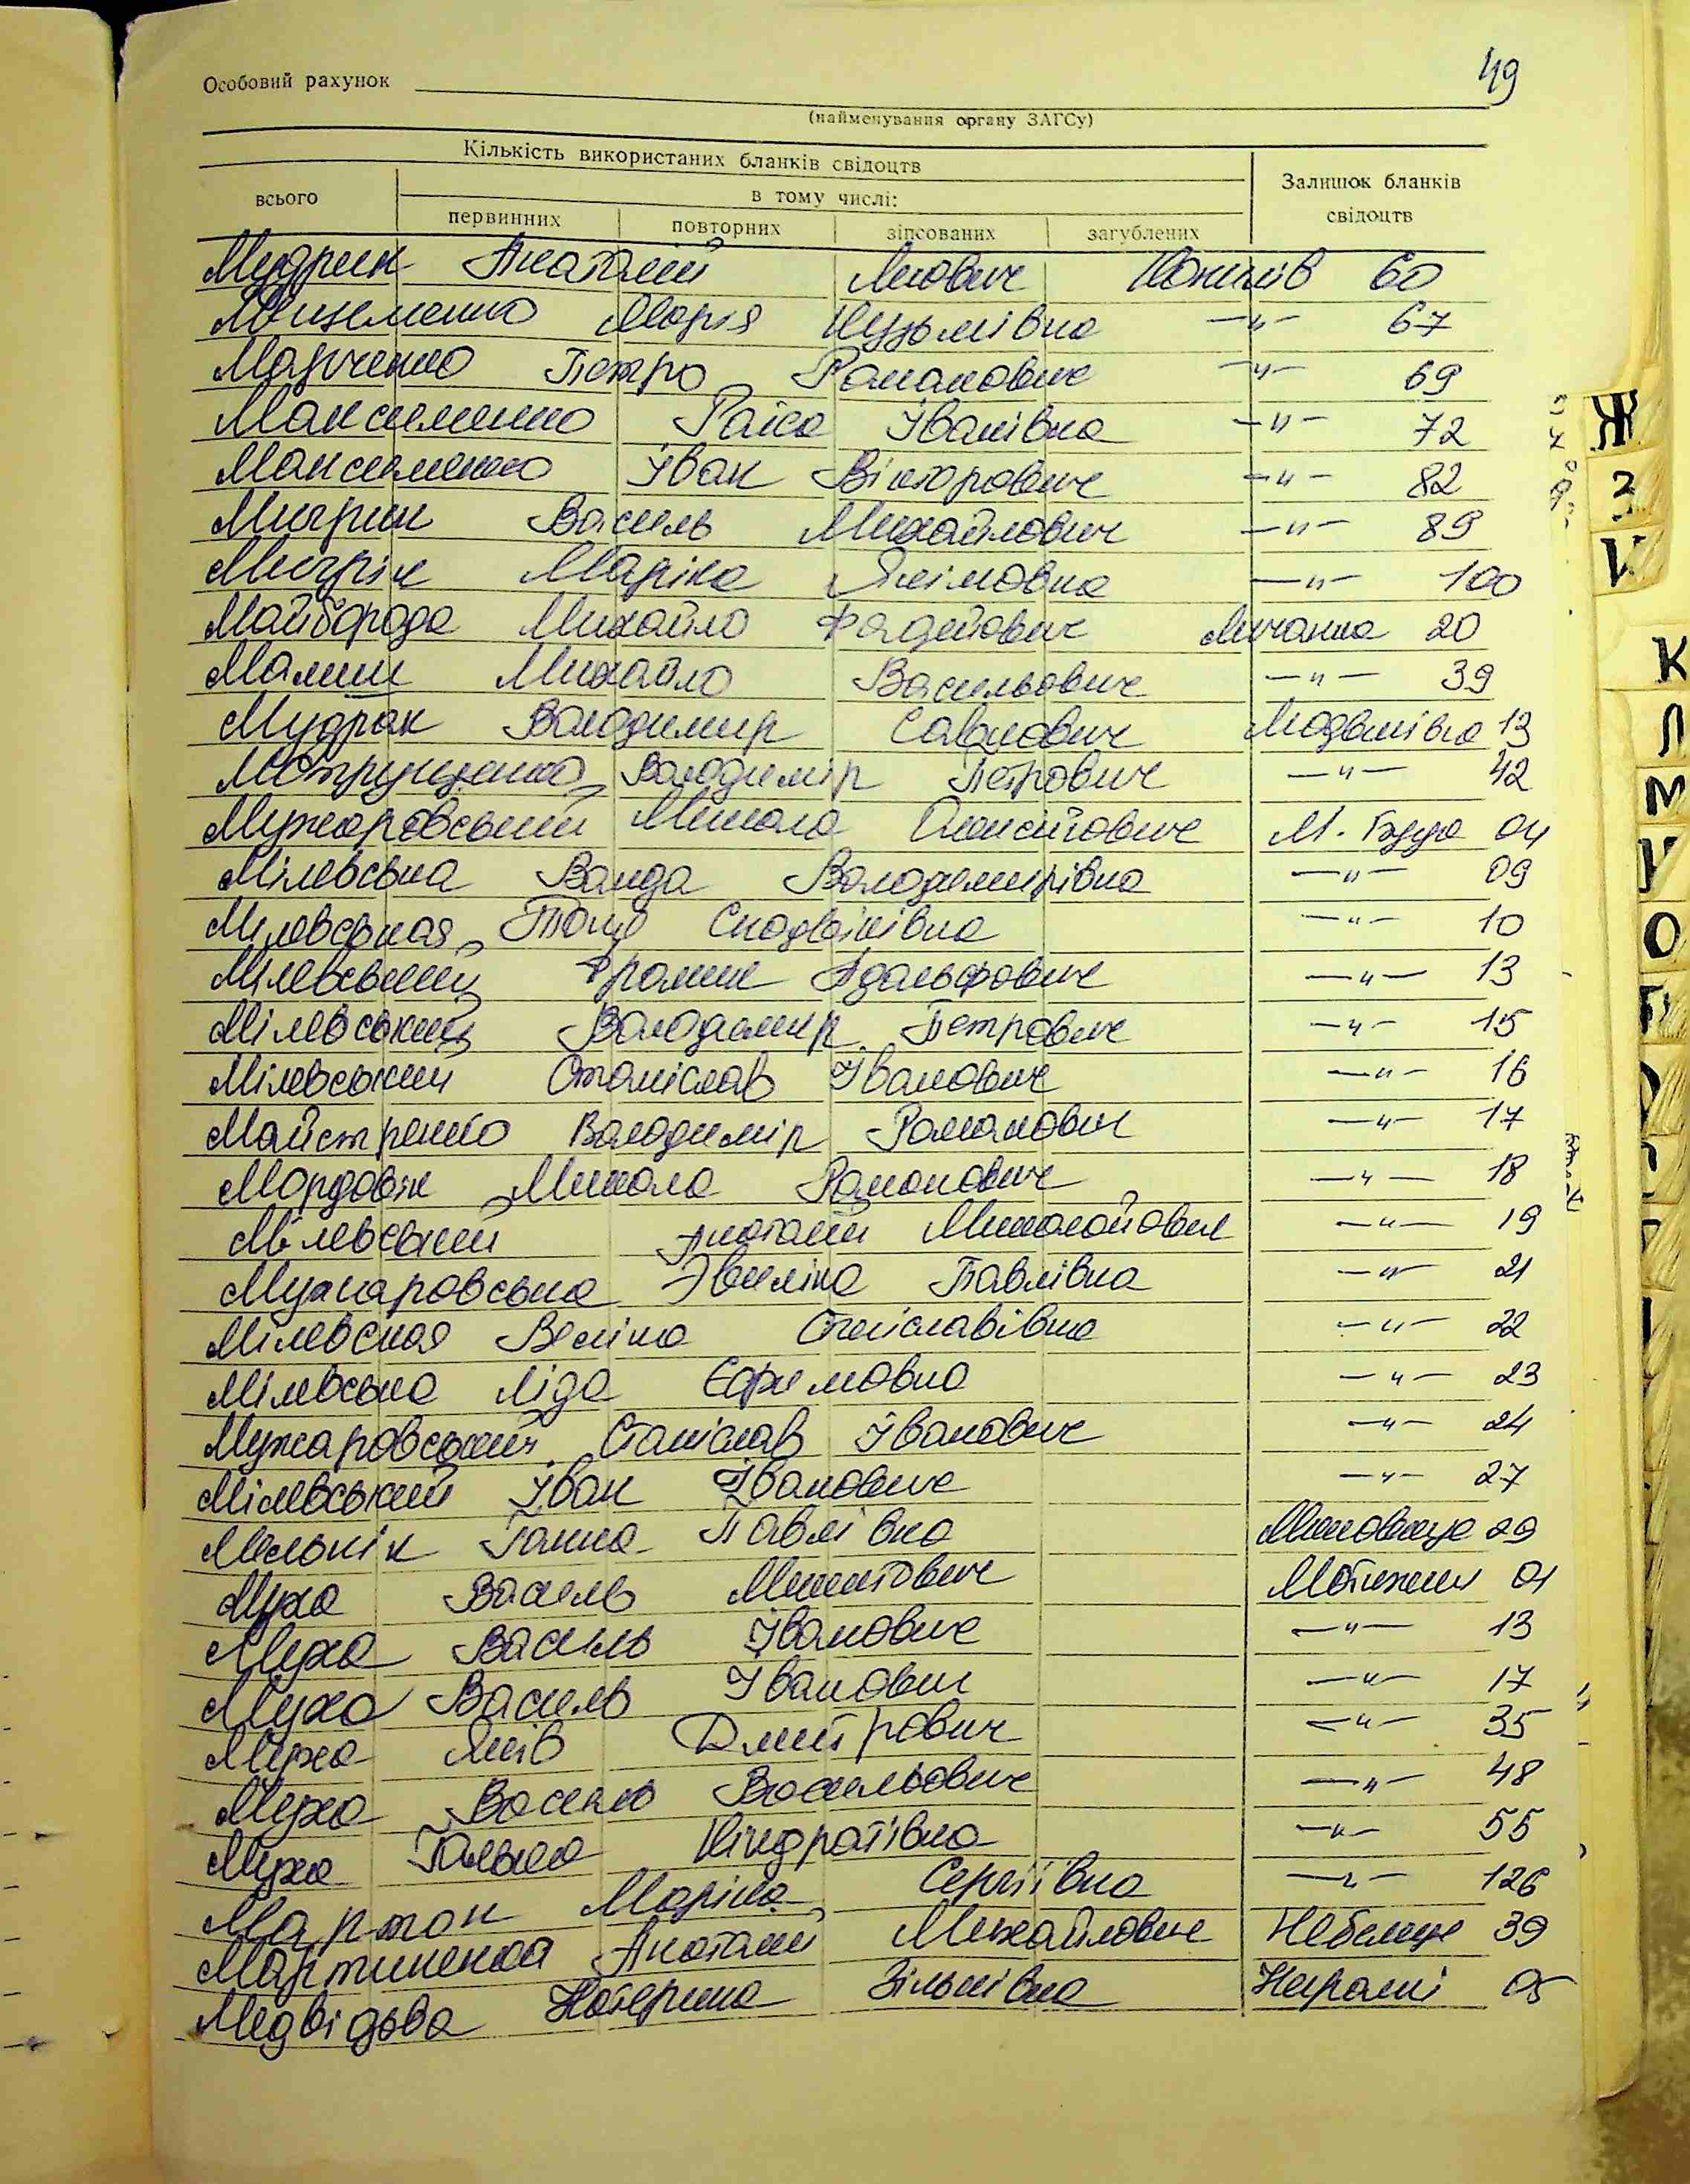 49
Особовий рахунок
(найменування органу ЗАГСу)
Кількість використаних бланків свідоцтв
Залишок бланків свідоцтв
всього
в тому числі:
первинних повторних зіпсованих загублених
Мудрик Анатолій 60
Марія Кузьмівна —"— 67
Марченко Петро Романович —"— 69
Максименко Раїса Іванівна —"— 72
Максименко Іван Вікторович —"— 82
Мигрин Василь Михайлович —"— 89
Мигрін Маріка Якімовна —"— 100
Майборода Михайло Фадейович Личанка 20
Малиш Михайло Васильович —"— 39
Мудрак Володимир Савлович 13
Володимір Петрович —"— 42
Мужаровський Микола М. Буда 04
Мілевська Ванда Володимирівна —"— 09
Мілевськая —"— 10
Мілевський Франик Адольфович —"— 13
Мілевський Володимир Петрович —"— 15
Мілевський Станіслав Іванович —"— 16
Майстренко Володимір Романович —"— 17
Микола Романович —"— 18
Мілевський Анатолій Миколайович —"— 19
Мужаровська Эвеліна Павлівна —"— 21
Мілевская —"— 22
Мілевська Ліда Єфимовна —"— 23
Мужаровський Станіслав Іванович —"— 24
Мілевський Іван Іванович —"— 27
Мельнік Ганна Павлівна 29
Муха Василь Микитович Мотижин 01
Муха Василь Іванович —"— 13
Муха Василь Іванович —"— 17
Муха Яків Дмитрович —"— 35
Муха Василь Васильович —"— 48
Муха Галька Кіндратівна —"— 55
Мартон Маріка Сергіївна —"— 126
Мартиненко Анатолій Михайлович Небелиця 39
Медвідова Катерина 05
Ж
З
И
К
Л
М
О